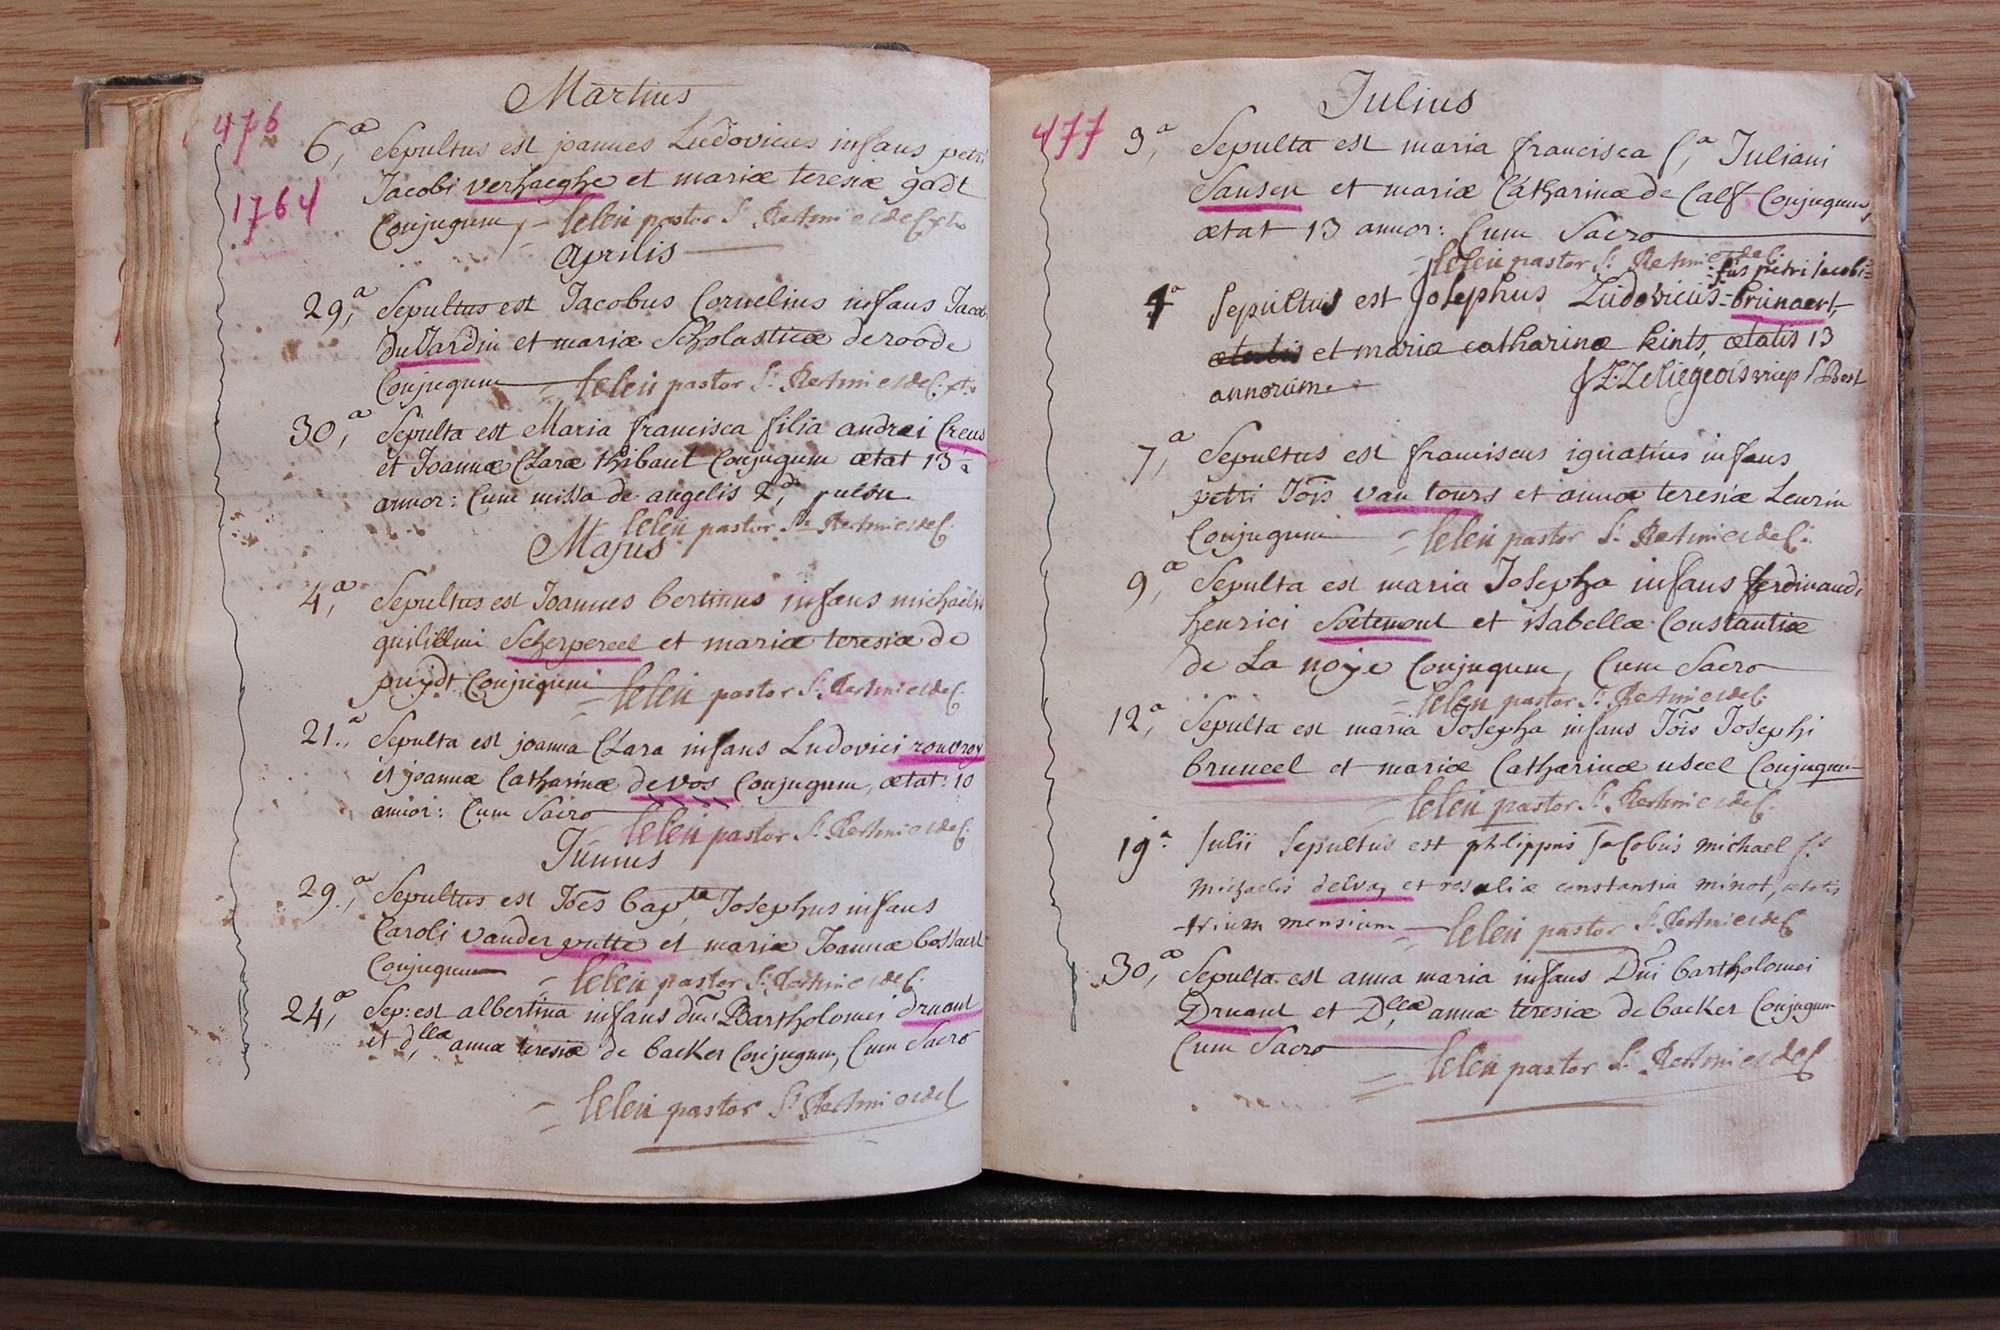 Martius
476
6,a Sepultus est joannes Ludovicus infans petri
1764
Jacobi verhaeghe et mariæ teresiæ gadt
Conjugum, = leleu pastor St.
Aprilis
29,a Sepultus est Jacobus Cornelius infans Jacobi
duJardin et mariæ Scholasticæ deroode
Conjugum = leleu pastor St.
30,a Sepulta est Maria francisca filia andreæ Creus
et Joannæ Claræ thibaut Conjugum ætat 13
annor: Cum missa de angelis
leleu pastor St.
Majus
4,a Sepultus est Joannes bertinus infans michaëlis
guilielmi Scherpereel et mariæ teresiæ de
puydt Conjugum = leleu pastor St.
21,a Sepulta est joanna Clara infans Ludovici rouvroy
et joannæ Catharinæ de vos Conjugum, ætat: 10
annor: Cum Sacro
= leleu pastor St.
Junius
29,a Sepultus est Joes bapta Josephus infans
Caroli vander putte et mariæ Joannæ bossaert
Conjugum = leleu pastor St.
24,a Sep: est albertina infans dni Bartholomei druant
et dllæ annæ teresiæ de backer Conjugum, Cum Sacro
= leleu pastor St.
Julius
477
3,a Sepulta est maria francisca f,a Juliani
Sansen et mariæ Catharinæ de Calf Conjugum,
ætat 13 annor: Cum Sacro
= leleu pastor St.
fus petri iacobi
4a Sepultus est Josephus Ludovicus brunaert,
ætatis et mariæ catharinæ kints, ætatis 13
annorum
7,a Sepultus est franciscus ignatius infans
petri Jois van tours et annæ teresiæ Leurin
Conjugum = leleu pastor St.
9,a Sepulta est maria Josepha infans ferdinandi
henrici Soetemont et isabellæ Constantiæ
de La noÿe Conjugum, Cum Sacro
= leleu pastor St.
12,a Sepulta est maria Josepha infans Jois Josephi
bruneel et mariæ Catharinæ useel Conjugum
= leleu pastor St.
19a Julii Sepultus est philippus Jacobus michael fs
michaelis delvaz et rosaliæ constantia minot, ætatis
trium mensium = leleu pastor St.
30,a Sepulta est anna maria infans Dni bartholomei
Druant et Dllæ annæ teresiæ de backer Conjugum
Cum Sacro
= leleu pastor St.